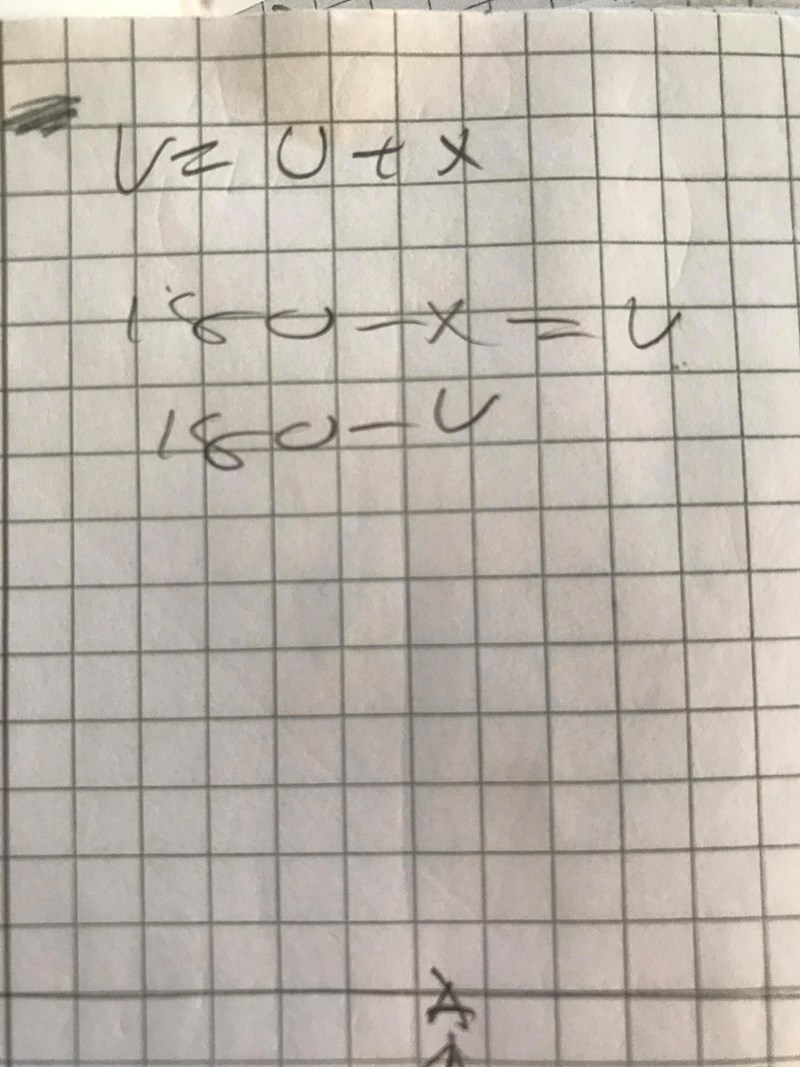 V = U + x
180 - x = U
180 - U
A